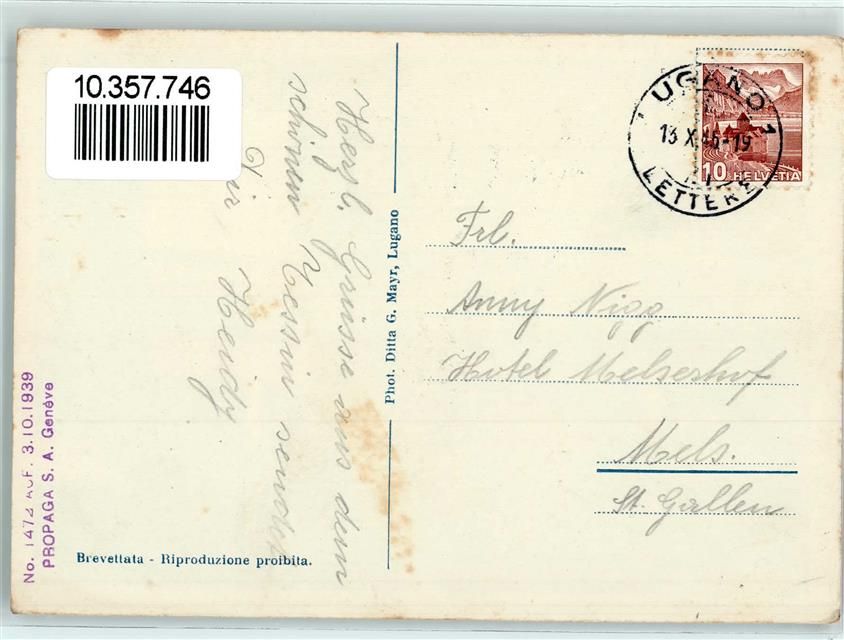 10.357.746
Herzl. Grüsse aus dem
schönen Tessin sendet
Dir Heidy
Phot. Ditta G. Mayr, Lugano
No. 1472 ACF. 3.10.1939
PROPAGA S. A. Genève
Brevettata - Riproduzione proibita.
LUGANO 1
13.X.45-19
LETTERE
10 HELVETIA
Frl.
Anny Nigg
Hotel Melserhof
Mels.
St. Gallen